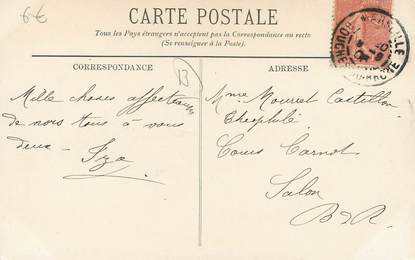 6€
CARTE POSTALE
Tous les Pays étrangers n'acceptent pas la Correspondance au recto
(Se renseigner à la Poste).
CORRESPONDANCE
ADRESSE
13
MARSEILLE
BOUCHES DU RHONE
Mille choses affectueuses
de nous tous à vous
deux -
Mme Mouret Castillon
Théophile
Cours Carnot
Salon
B d R